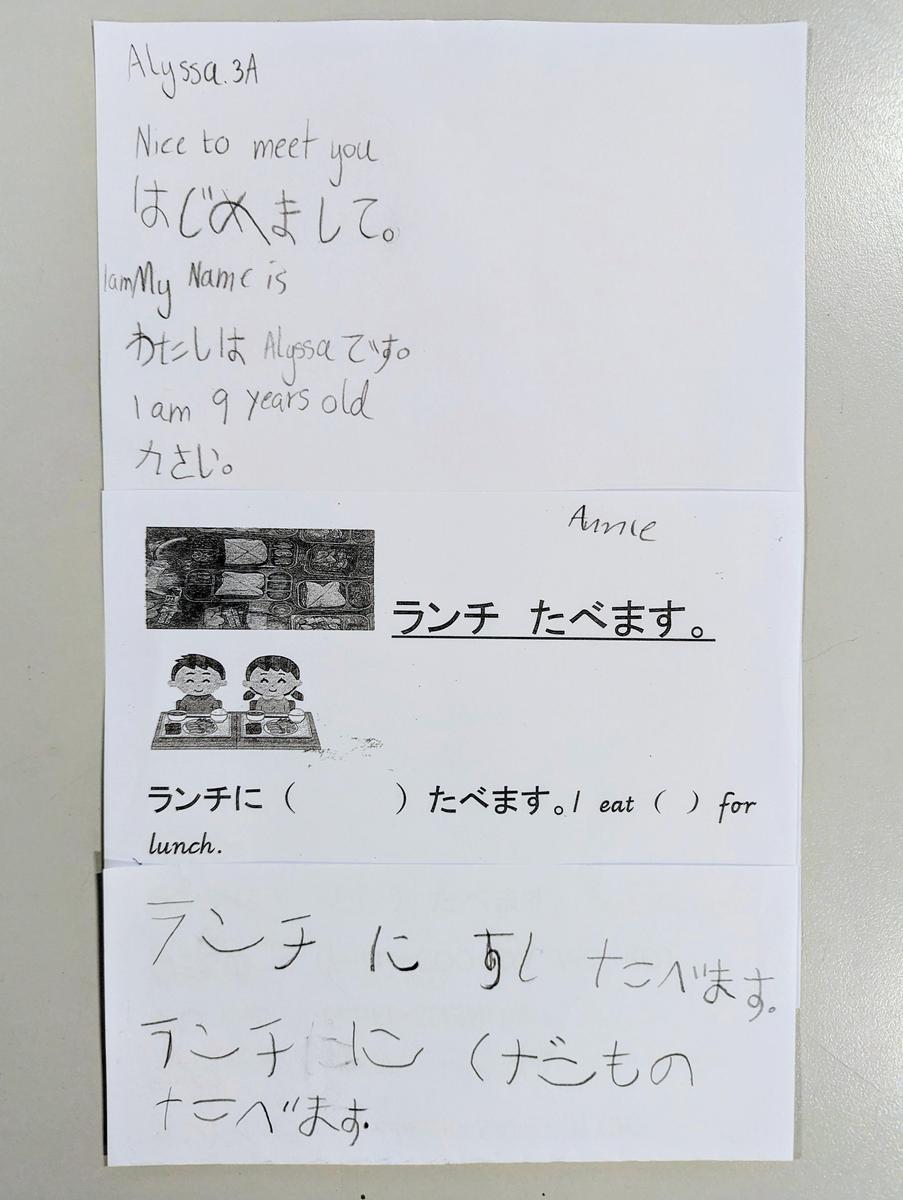 Alyssa.3A
Nice to meet you
はじめまして。
I am My Name is
わたしは Alyssa です。
I am 9 years old
九さい。
Annie
ランチ たべます。
ランチに（ ）たべます。I eat ( ) for
lunch.
ランチ に すし たべます。
ランチ に くだもの
たべます。